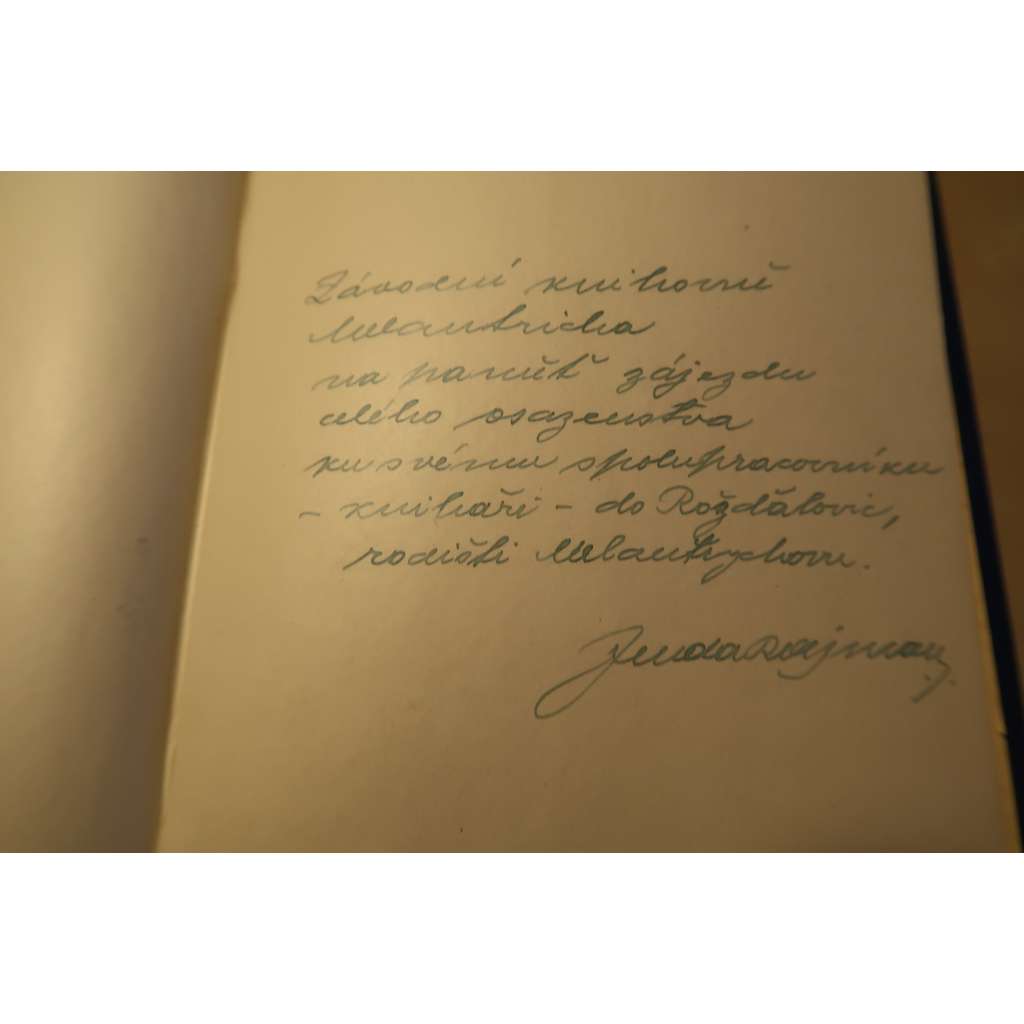 Závodní knihovně
Melantricha
na paměť zájezdu
celého osazenstva
ku svému spolupracovníku
- knihaři - do Rožďálovic,
rodišti Melantrychovu.
Jenda Rajman